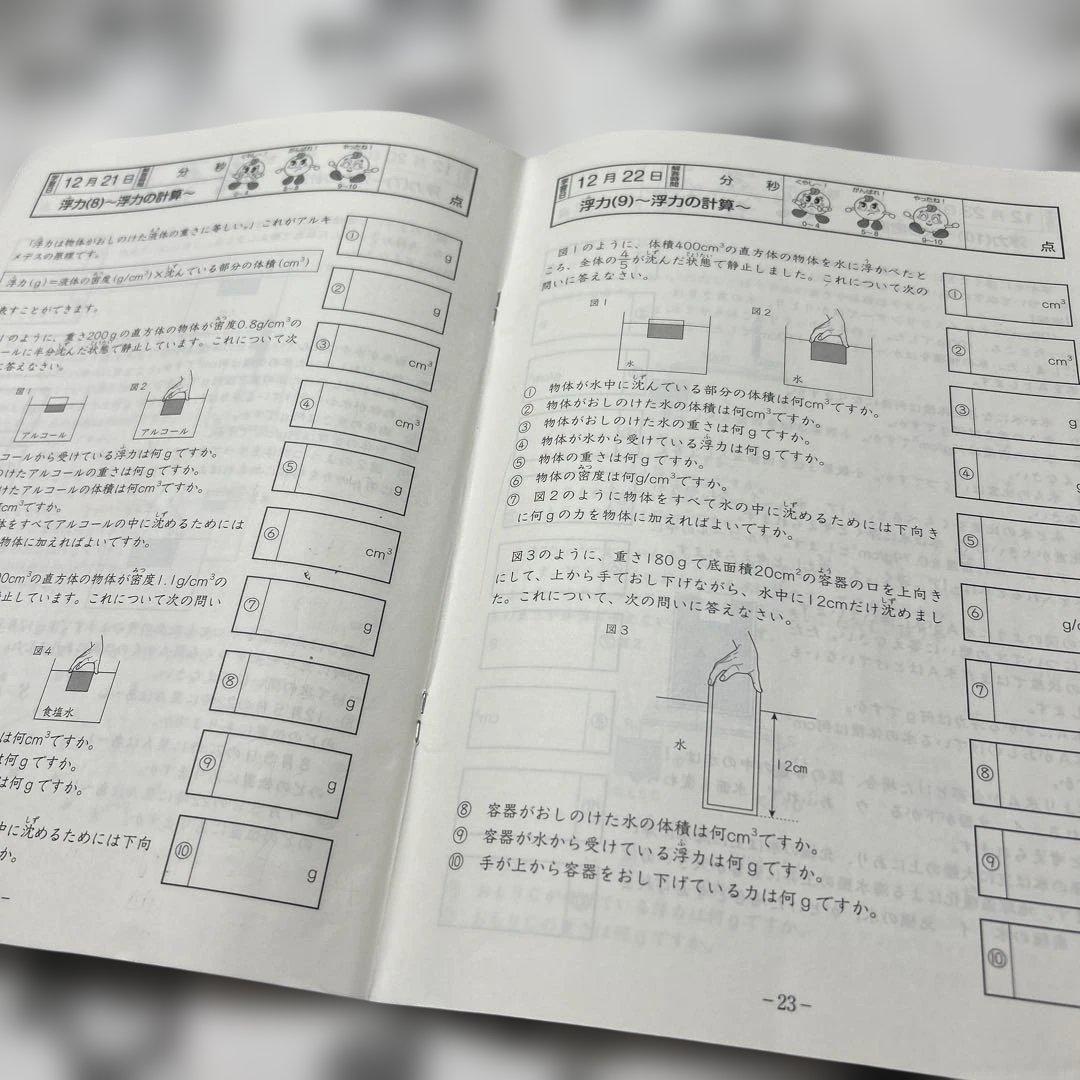 12月21日
分 秒
がんばれ!
やったね!
9〜10
点
浮力(8)〜浮力の計算〜
「浮力は物体がおしのけた液体の重さに等しい。」これがアルキ
メデスの原理です。
浮力(g)=液体の密度(g/cm³)×沈んでいる部分の体積(cm³)
表すことができます。
のように、重さ200gの直方体の物体が密度0.8g/cm³の
ールに半分沈んだ状態で静止しています。これについて次
に答えなさい。
図1
図2
アルコール
アルコール
コールから受けている浮力は何gですか。
のけたアルコールの重さは何gですか。
けたアルコールの体積は何cm³ですか。
cm³ですか。
体をすべてアルコールの中に沈めるためには
物体に加えればよいですか。
0cm³の直方体の物体が密度1.1g/cm³の
止しています。これについて次の問い
図4
食塩水
は何cm³ですか。
は何gですか。
は何gですか。
中に沈めるためには下向
か。
① g
② g
③ cm³
④ cm³
⑤ g
⑥ cm³
⑦ g
⑧ g
⑨ g
⑩ g
12月22日
解答時間
分 秒
くやし〜!
0〜4
がんばれ!
5〜8
やったね!
9〜10
点
浮力(9)〜浮力の計算〜
図1のように、体積400cm³の直方体の物体を水に浮かべたと
ころ、全体の4/5が沈んだ状態で静止しました。これについて次の
問いに答えなさい。
図1
図2
水
水
① 物体が水中に沈んでいる部分の体積は何cm³ですか。
② 物体がおしのけた水の体積は何cm³ですか。
③ 物体がおしのけた水の重さは何gですか。
④ 物体が水から受けている浮力は何gですか。
⑤ 物体の重さは何gですか。
⑥ 物体の密度は何g/cm³ですか。
⑦ 図2のように物体をすべて水の中に沈めるためには下向き
に何gの力を物体に加えればよいですか。
図3のように、重さ180gで底面積20cm²の容器の口を上向き
にして、上から手でおし下げながら、水中に12cmだけ沈めまし
た。これについて、次の問いに答えなさい。
図3
水
12cm
⑧ 容器がおしのけた水の体積は何cm³ですか。
⑨ 容器が水から受けている浮力は何gですか。
⑩ 手が上から容器をおし下げている力は何gですか。
① cm³
② cm³
③ g
④
⑤
⑥ g/c
⑦
⑧
⑨
⑩
-23-